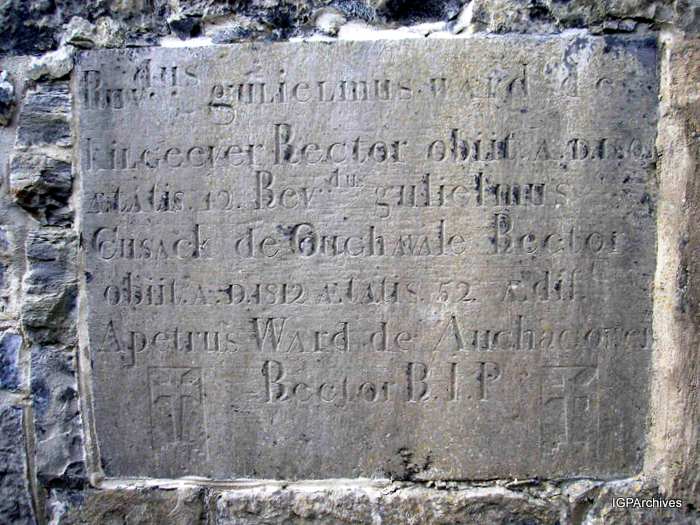 Revdus gulielmus ward de
kilgeever Rector obiit A.D.
ætatis Revdus gulielmus
Cusack de Oughavale Rector
obiit A.D. 1812 ætatis 52 Ædif.
A petrus Ward de Aughagower
Rector R.I.P
IGPArchives